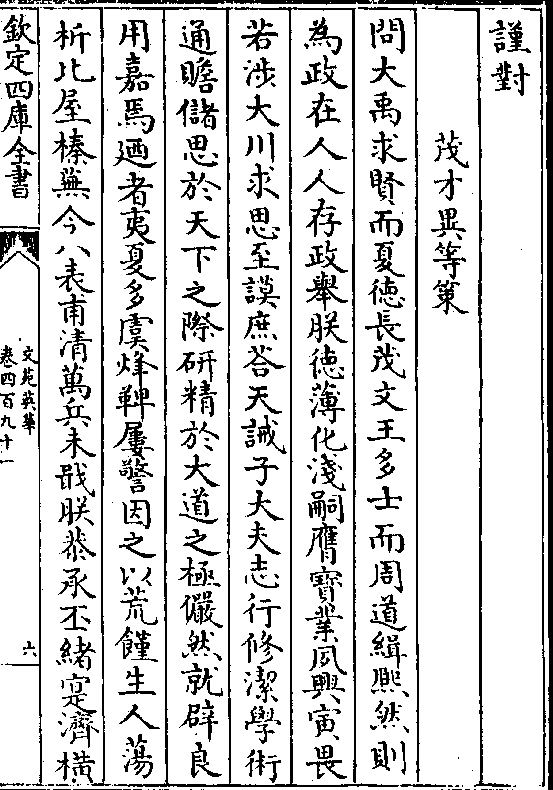 謹對
茂才異等策
問大禹求賢而夏徳長茂文王多士而周道緝熙然則
為政在人人存政舉朕徳薄化淺嗣膺寶業夙興寅畏
若涉大川求思至謨庶荅天誡子大夫志行修潔學術
通贍儲思於天下之際研精於大道之極儼然就辟良
用嘉焉廼者夷夏多虞烽鞞屢警因之以荒饉生人蕩
析比屋榛蕪今八表甫清萬兵未戢朕恭承丕緒寔濟橫
欽定四庫全書
文苑英華
卷四百九十一
六